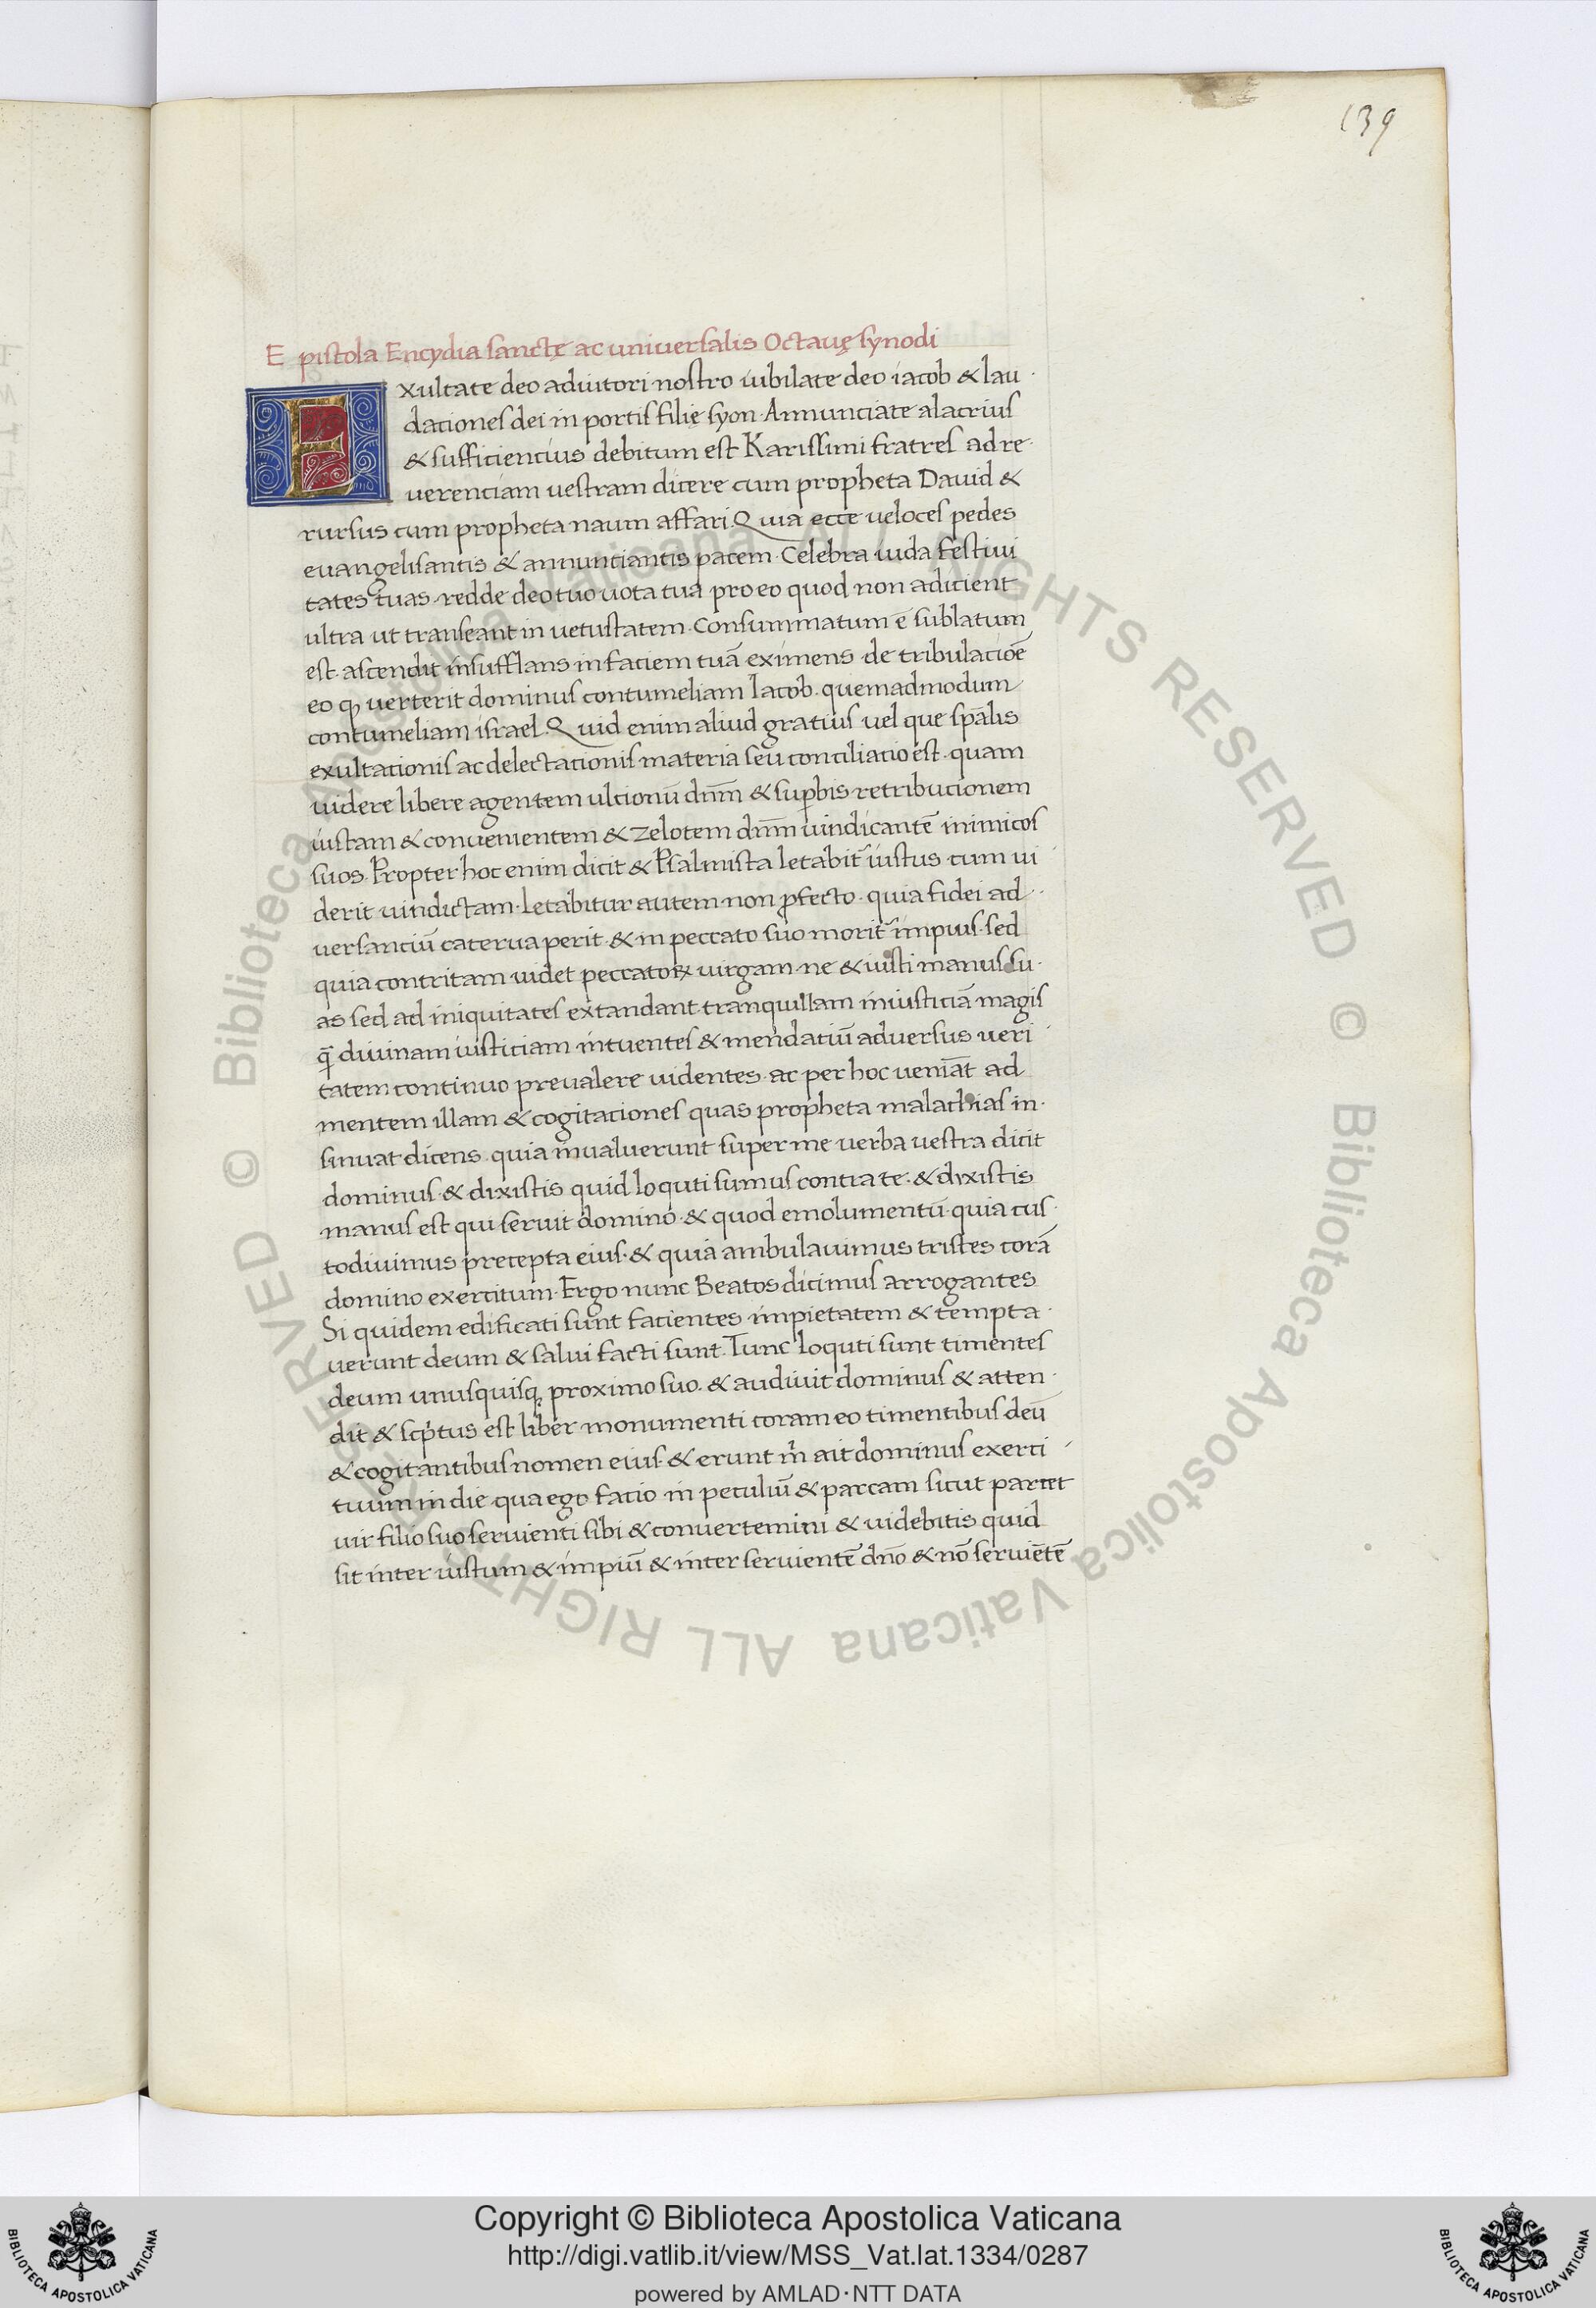 139
Epistola Encydia sanctę ac uniuersalis Octauę synodi
Exultate deo adiutori nostro iubilate deo iacob & lau
dationes dei in portis filię syon. Annunciate alacrius
& sufficiencius debitum est Karissimi fratres ad re
uerenciam uestram dicere cum propheta Dauid &
rursus cum propheta naum affari. Quia ecce ueloces pedes
euangelisantis & annunciantis pacem. Celebra iuda festiui
tates tuas. redde deo tuo uota tua pro eo quod non adicient
ultra ut transeant in uetustatem. Consummatum ē sublatum
est. ascendit insufflans in faciem tuā eximens de tribulaciōe
eo ꝙ uerterit dominus contumeliam Iacob. quemadmodum
contumeliam israel. Quid enim aliud gratius uel que sp̄alis
exultationis ac delectationis materia seu conciliatio est. quam
uidere libere agentem ulcionū dn̄m & suꝑbis retribucionem
iustam & conuenientem & zelotem dn̄m uindicantē inimicos
suos. Propter hoc enim dicit & Psalmista letabit᷑ iustus cum ui
derit uindictam. Letabitur autem non ꝓfecto. quia fidei ad
uersanciū caterua perit. & in peccato suo morit᷑ impius. sed
quia contritam uidet peccatoꝝ uirgam. ne & iusti manus su
as sed ad iniquitates extandant. tranquillam iniusticiā magis
qᷓ diuinam iusticiam intuentes & mendatiū aduersus ueri
tatem continuo preualere uidentes. ac per hoc ueniāt ad
mentem illam & cogitaciones quas propheta malachias in
sinuat dicens. quia inualuerunt super me uerba uestra dicit
dominus. & dixistis quid loquti sumus contra te. & dixistis
manus est qui seruit domino. & quod emolumentū. quia cus
todiuimus precepta eius. & quia ambulauimus tristes corā
domino exercitum. Ergo nunc Beatos dicimus arrogantes
Si quidem edificati sunt facientes impietatem & tempta
uerunt deum & salui facti sunt. Tunc loquti sunt timentes
deum unusquisqꝫ proximo suo. & audiuit dominus & atten
dit & scp̍tus est liber monumenti coram eo timentibus deū
& cogitantibus nomen eius. & erunt m̍ ait dominus exerci
tuum in die qua ego facio in peculiū & parcam sicut parcet
uir filio suo seruienti sibi & conuertemini & uidebitis quid
sit inter iustum & impiū & inter seruientē dn̄o & nō seruiētē
Copyright © Biblioteca Apostolica Vaticana
http://digi.vatlib.it/view/MSS_Vat.lat.1334/0287
powered by AMLAD·NTT DATA
BIBLIOTECA APOSTOLICA VATICANA
BIBLIOTECA APOSTOLICA VATICANA
© Biblioteca Apostolica Vaticana ALL RIGHTS RESERVED © Biblioteca Apostolica Vaticana ALL RIGHTS RESERVED